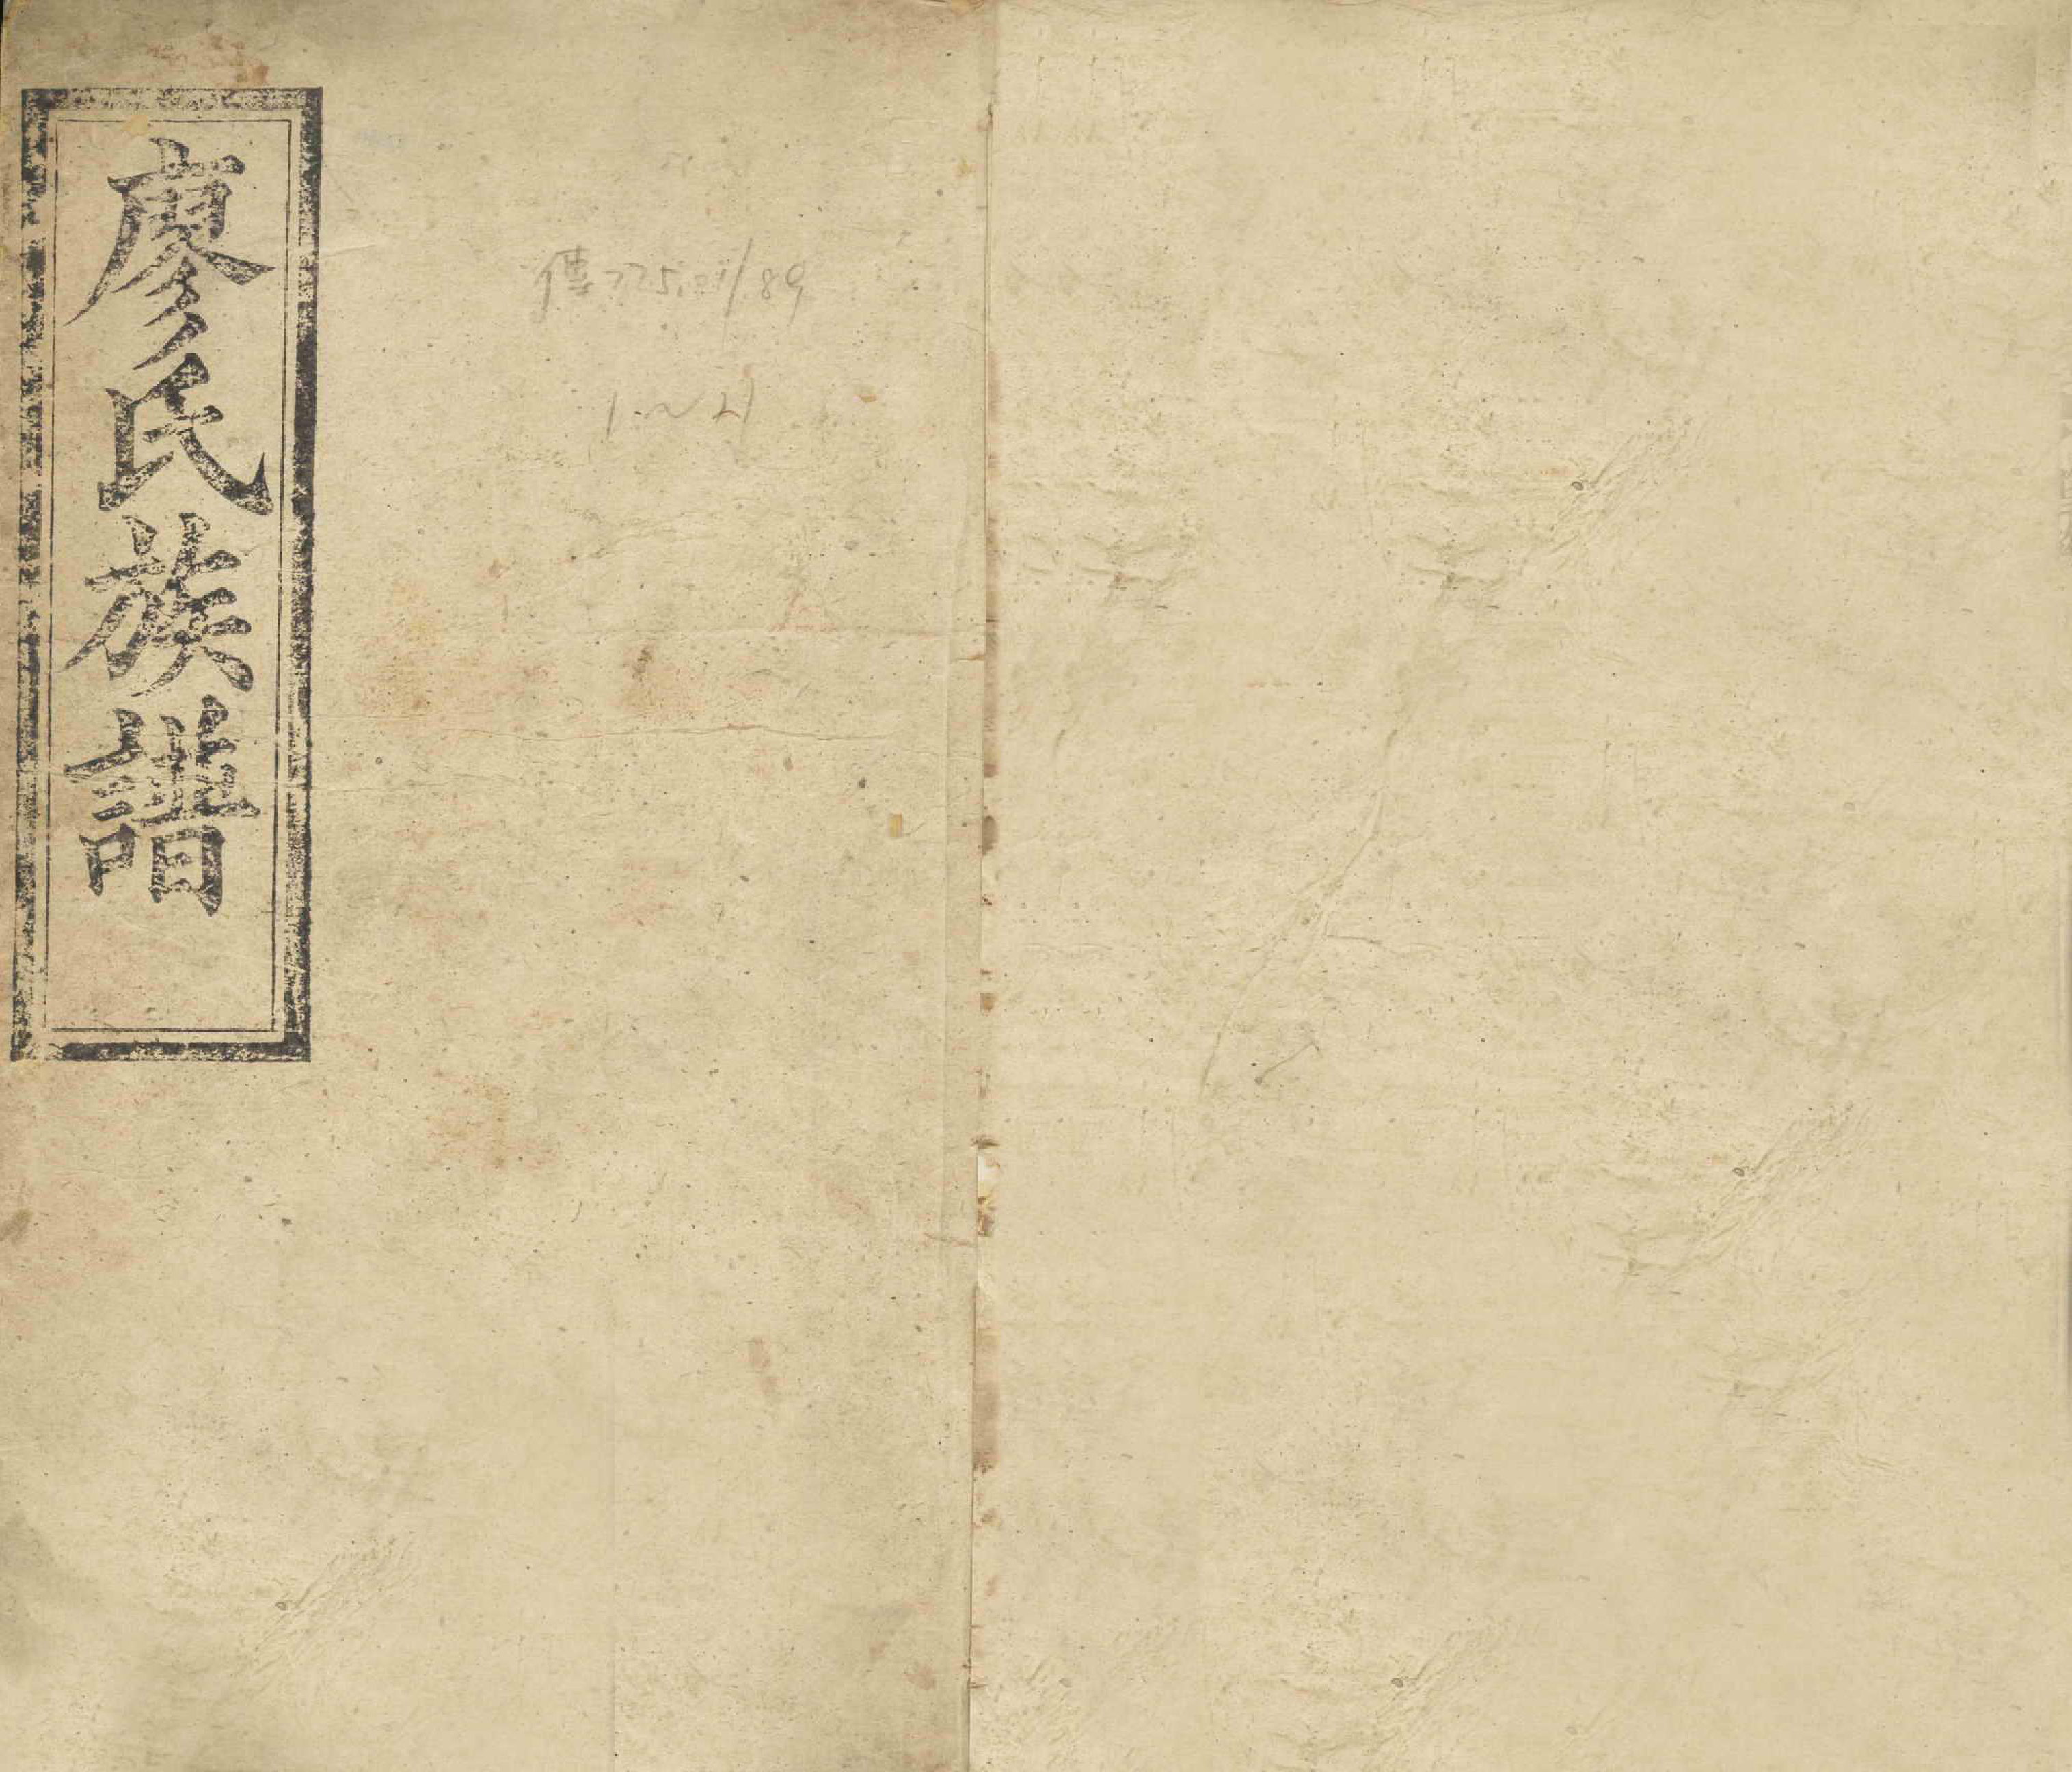 廖氏族譜
傳775.21/89
1~4